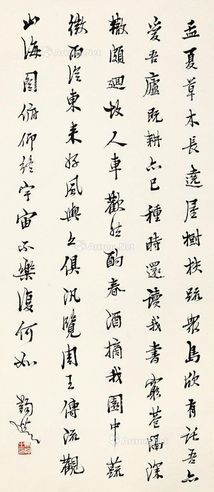 孟夏草木長遶屋樹扶疏眾鳥欣有託吾亦
愛吾廬既耕亦已種時還讀我書窮巷隔深
轍頗迴故人車歡然酌春酒摘我園中蔬
微雨從東來好風與之俱汎覽周王傳流觀
山海圖俯仰終宇宙不樂復何如